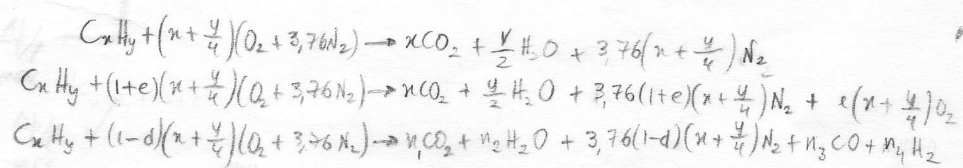 CxHy + (x + y/4)(O₂ + 3,76N₂) → xCO₂ + y/2 H₂O + 3,76(x + y/4) N₂
CxHy + (1+e)(x + y/4)(O₂ + 3,76N₂) → xCO₂ + y/2 H₂O + 3,76(1+e)(x + y/4)N₂ + e(x + y/4)O₂
CxHy + (1-d)(x + y/4)(O₂ + 3,76 N₂) → n₁CO₂ + n₂H₂O + 3,76(1-d)(x + y/4)N₂ + n₃CO + n₄H₂